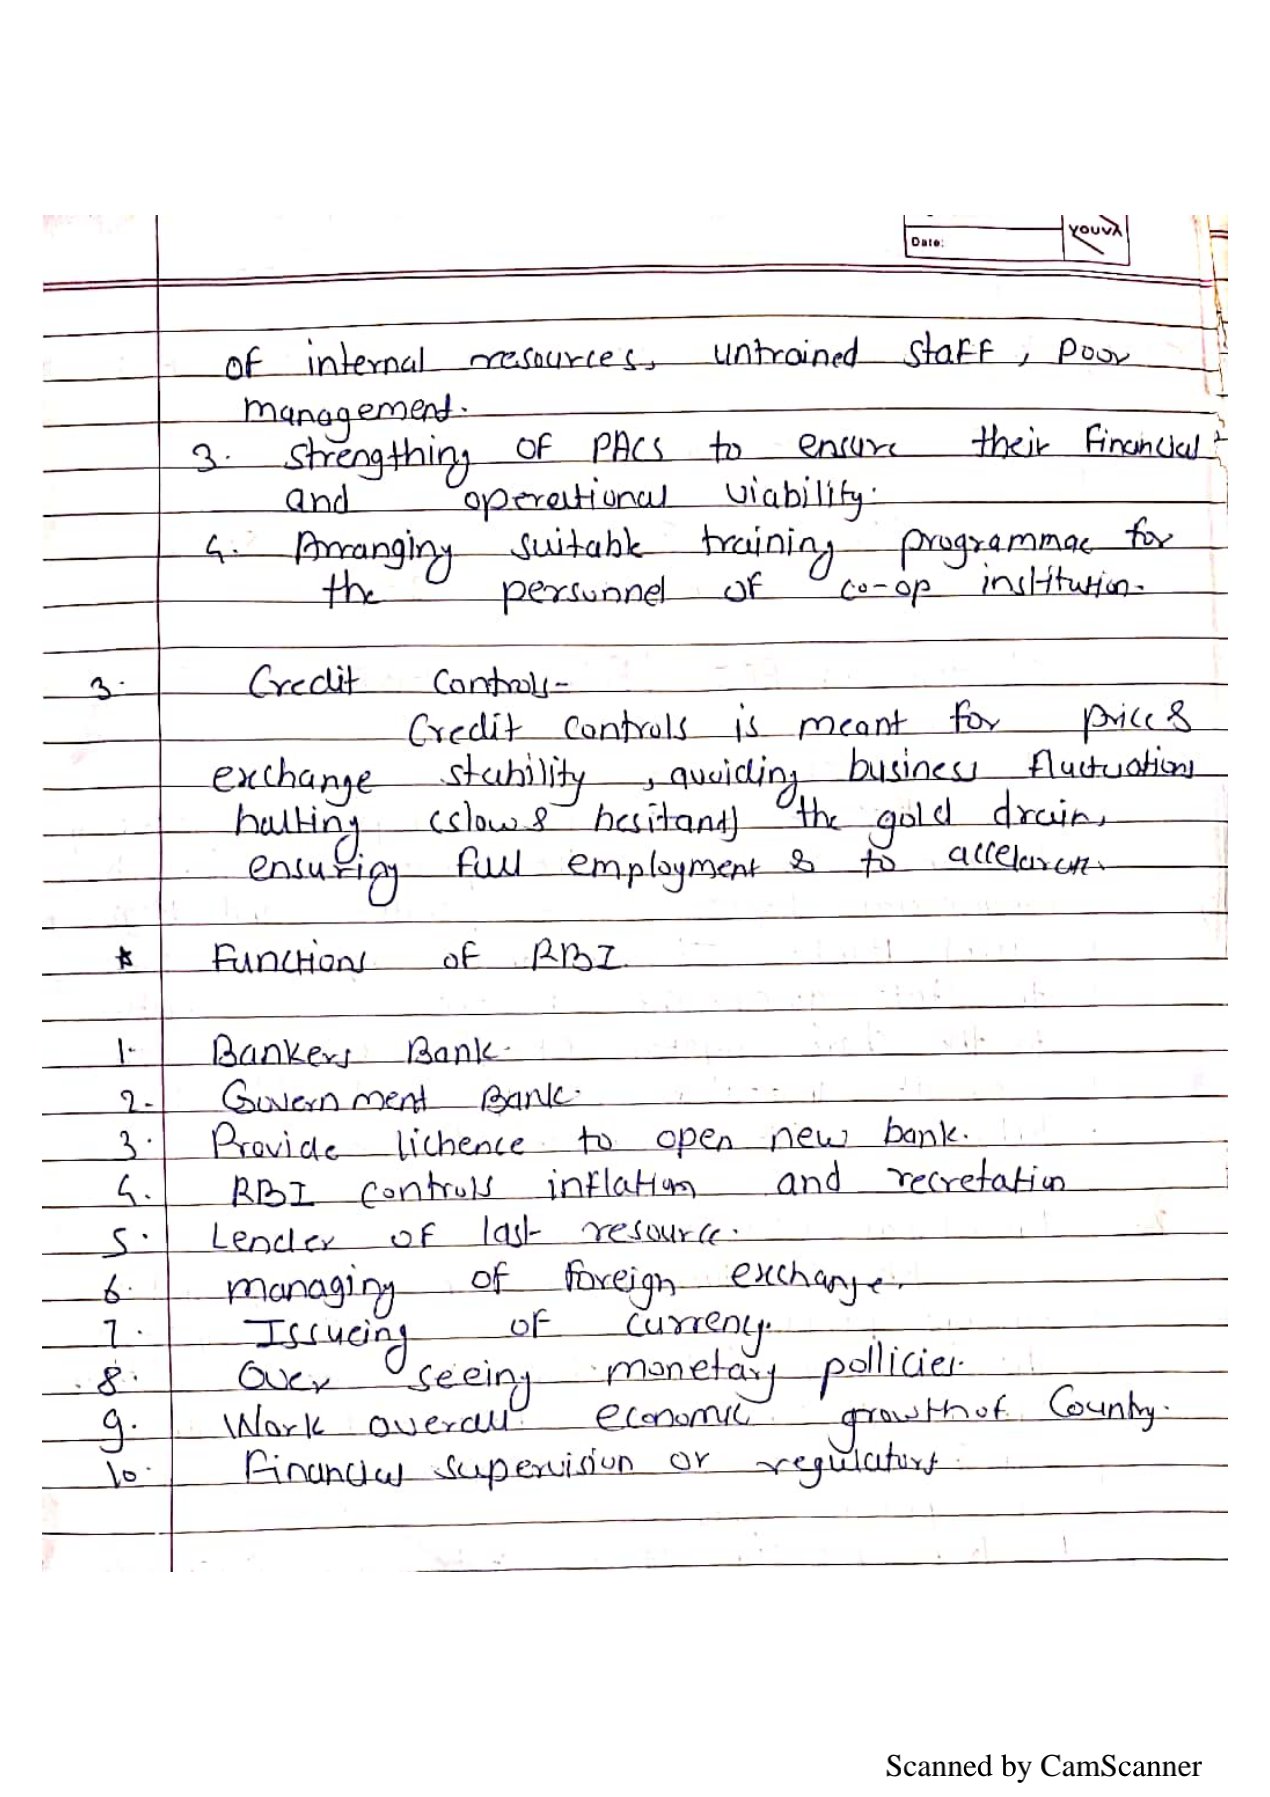 Date:
YOUVA
of internal resources, untrained staff, poor
management.
3. strengthing of PACS to ensure their financial
and operational viability.
4. Arranging suitable training programmae for
the personnel of co-op institution.
3. Credit Controls-
Credit controls is meant for price &
exchange stability, avoiding business fluctuations
halting (slow & hesitant) the gold drain,
ensurigy full employment & to
* Functions of RBI
1. Bankers Bank.
2. Government Bank.
3. Provide lichence to open new bank.
4. RBI controls inflation and recretation
5. Lender of last resource.
6. managing of foreign exchange.
7. Issueing of currency.
8. Over seeing monetary pollicies.
9. Work overall economic growth of Country.
10. Financial supervision or regulators.
Scanned by CamScanner